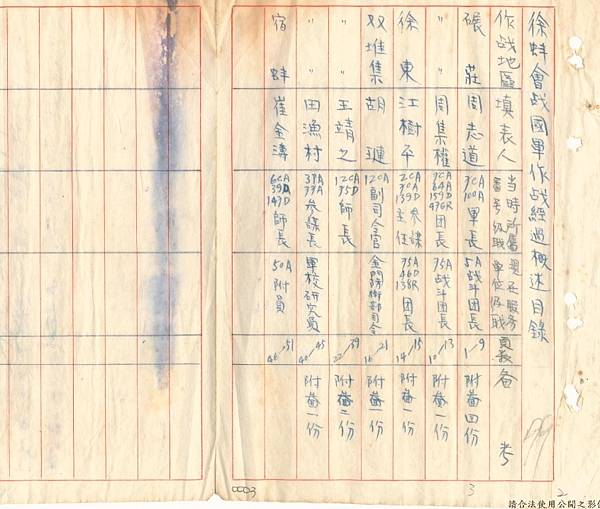 徐蚌會战國軍作战經過概述目錄
作战地區 填表人 當時所屬番號級職 現在服務單位及職 頁數 備考
碾莊 周志道 7CA 100A 軍長 5A战斗团長 1/9 附畨四份
〃 周集權 7CA 64A 159D 476R 团長 75A战斗团長 10/13 附畨一份
徐東 江樹平 2CA 70A 139D 參謀主任 75A 46D 138R 团長 14/15 附畨一份
双堆集 胡璉 12CA 副司令官 金門防衛部司令 16/21 附畨一份
〃 王靖之 12CA 75D 師長 22/39 附畨二份
〃 田漁村 39A 99A 參謀長 軍校研究員 40/45 附畨一份
宿蚌 崔金溥 6CA 39A 147D 師長 50A附員 46/51
0003
3
2
請合法使用公開之影像